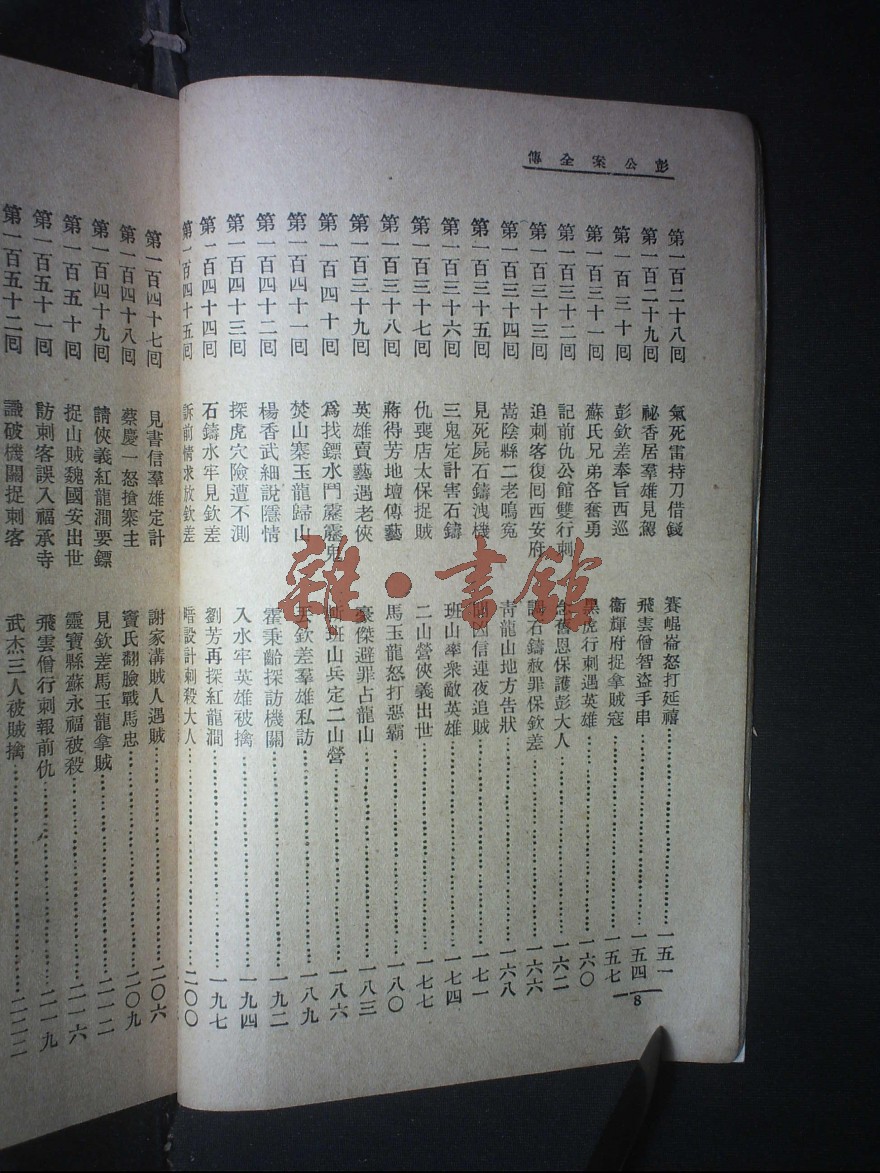 彭公案全傳
第一百二十八囘 氣死雷持刀借錢 賽崐崙怒打延禧 一五一
第一百二十九囘 祕香居羣雄見駕 飛雲僧智盜手串 一五四
第一百三十囘 彭欽差奉旨西巡 衞輝府捉拿賊寇 一五七
第一百三十一囘 蘇氏兄弟各奮勇 黑虎行刺遇英雄 一六〇
第一百三十二囘 記前仇公館雙行刺 念舊恩保護彭大人 一六二
第一百三十三囘 追刺客復囘西安府 石鑄赦罪保欽差 一六六
第一百三十四囘 嵩陰縣二老鳴寃 靑龍山地方告狀 一六八
第一百三十五囘 見死屍石鑄洩機 國信連夜追賊 一七一
第一百三十六囘 三鬼定計害石鑄 班山率衆敵英雄 一七四
第一百三十七囘 仇喪店太保捉賊 二山營俠義出世 一七七
第一百三十八囘 蔣得芳地壇傳藝 馬玉龍怒打惡霸 一八〇
第一百三十九囘 英雄賣藝遇老俠 豪傑避罪占龍山 一八三
第一百四十囘 爲找鏢水鬥鬼 班山兵定二山營 一八六
第一百四十一囘 焚山寨玉龍歸山 欽差羣雄私訪 一八九
第一百四十二囘 楊香武細説隱情 霍秉齡探訪機關 一九二
第一百四十三囘 探虎穴險遭不測 入水牢英雄被擒 一九四
第一百四十四囘 石鑄水牢見欽差 劉芳再探紅龍澗 一九七
第一百四十五囘 訴前情求放欽差 暗設計刺殺大人 二〇〇
第一百四十七囘 見書信羣雄定計 謝家溝賊人遇賊 二〇六
第一百四十八囘 蔡慶一怒搶寨主 竇氏翻臉戰馬忠 二〇九
第一百四十九囘 請俠義紅龍澗要鏢 見欽差馬玉龍拿賊 二一二
第一百五十囘 捉山賊魏國安出世 靈寶縣蘇永福被殺 二一六
第一百五十一囘 訪刺客誤入福承寺 飛雲僧行刺報前仇 二一九
第一百五十二囘 識破機關捉刺客 武杰三人被賊擒 二二二
8
雜·書舘